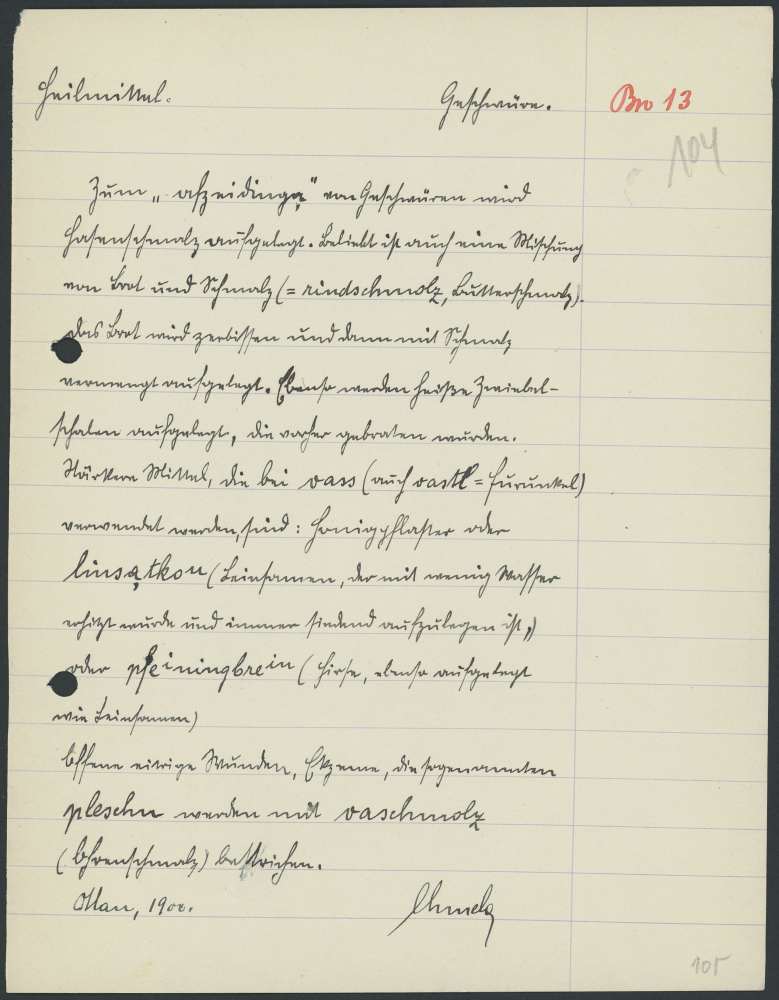 Heilmittel. Geschwüre. Bro 13
104
Zum „afzeidinga" von Geschwüren wird
Hasenschmalz aufgelegt. Beliebt ist auch eine Mischung
von Brot und Schmalz (= rindschmolz, Butterschmalz).
Das Brot wird zerbissen und dann mit Schmalz
vermengt aufgelegt. Ebenso werden heiße Zwiebel-
schalen aufgelegt, die vorher gebraten wurden.
Stärkere Mittel, die bei oass (auch oastl = Furunkel)
verwendet werden, sind: Honigpflaster oder
linsatkon (Leinsamen, der mit wenig Wasser
erhitzt wurde und immer siedend aufzulegen ist,)
oder pfeiningbrein (Hirse, ebenso aufgelegt
wie Leinsamen)
Offene eitrige Wunden, Ekzeme, die sogenannten
pleschn werden mit oaschmolz
(Ohrenschmalz) bestrichen.
Man, 1900. Chmela
105